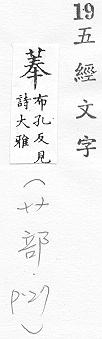 19
五經文字
菶
布孔反見
詩大雅
(艹部·p.27)